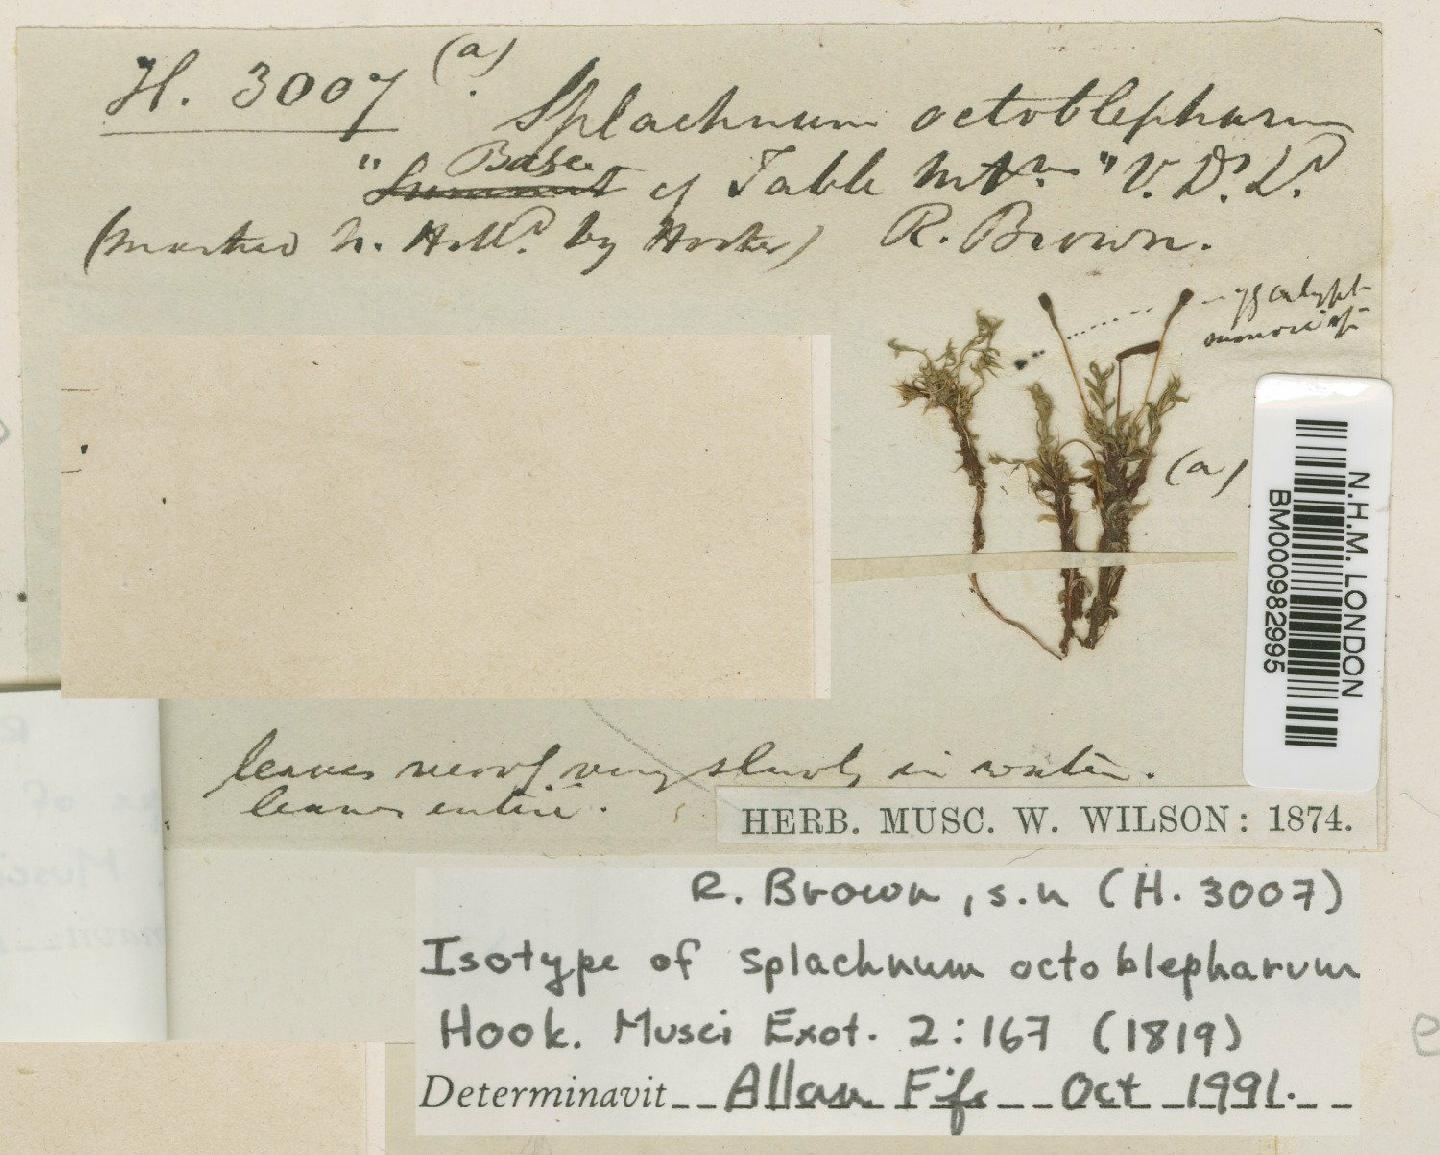 H. 3007 (a).
Splachnum octoblepharum
"Summit Base of Table Mtn." V. D.s Ld
(marked N. Holld. by Hooker) R. Brown.
(a)
leaves revive very slowly in water.
leaves entire.
HERB. MUSC. W. WILSON: 1874.
N.H.M. LONDON
BM000982995
R. Brown, s.n (H. 3007)
Isotype of Splachnum octoblepharum
Hook. Musci Exot. 2:167 (1819)
Determinavit Allan Fife Oct 1991.